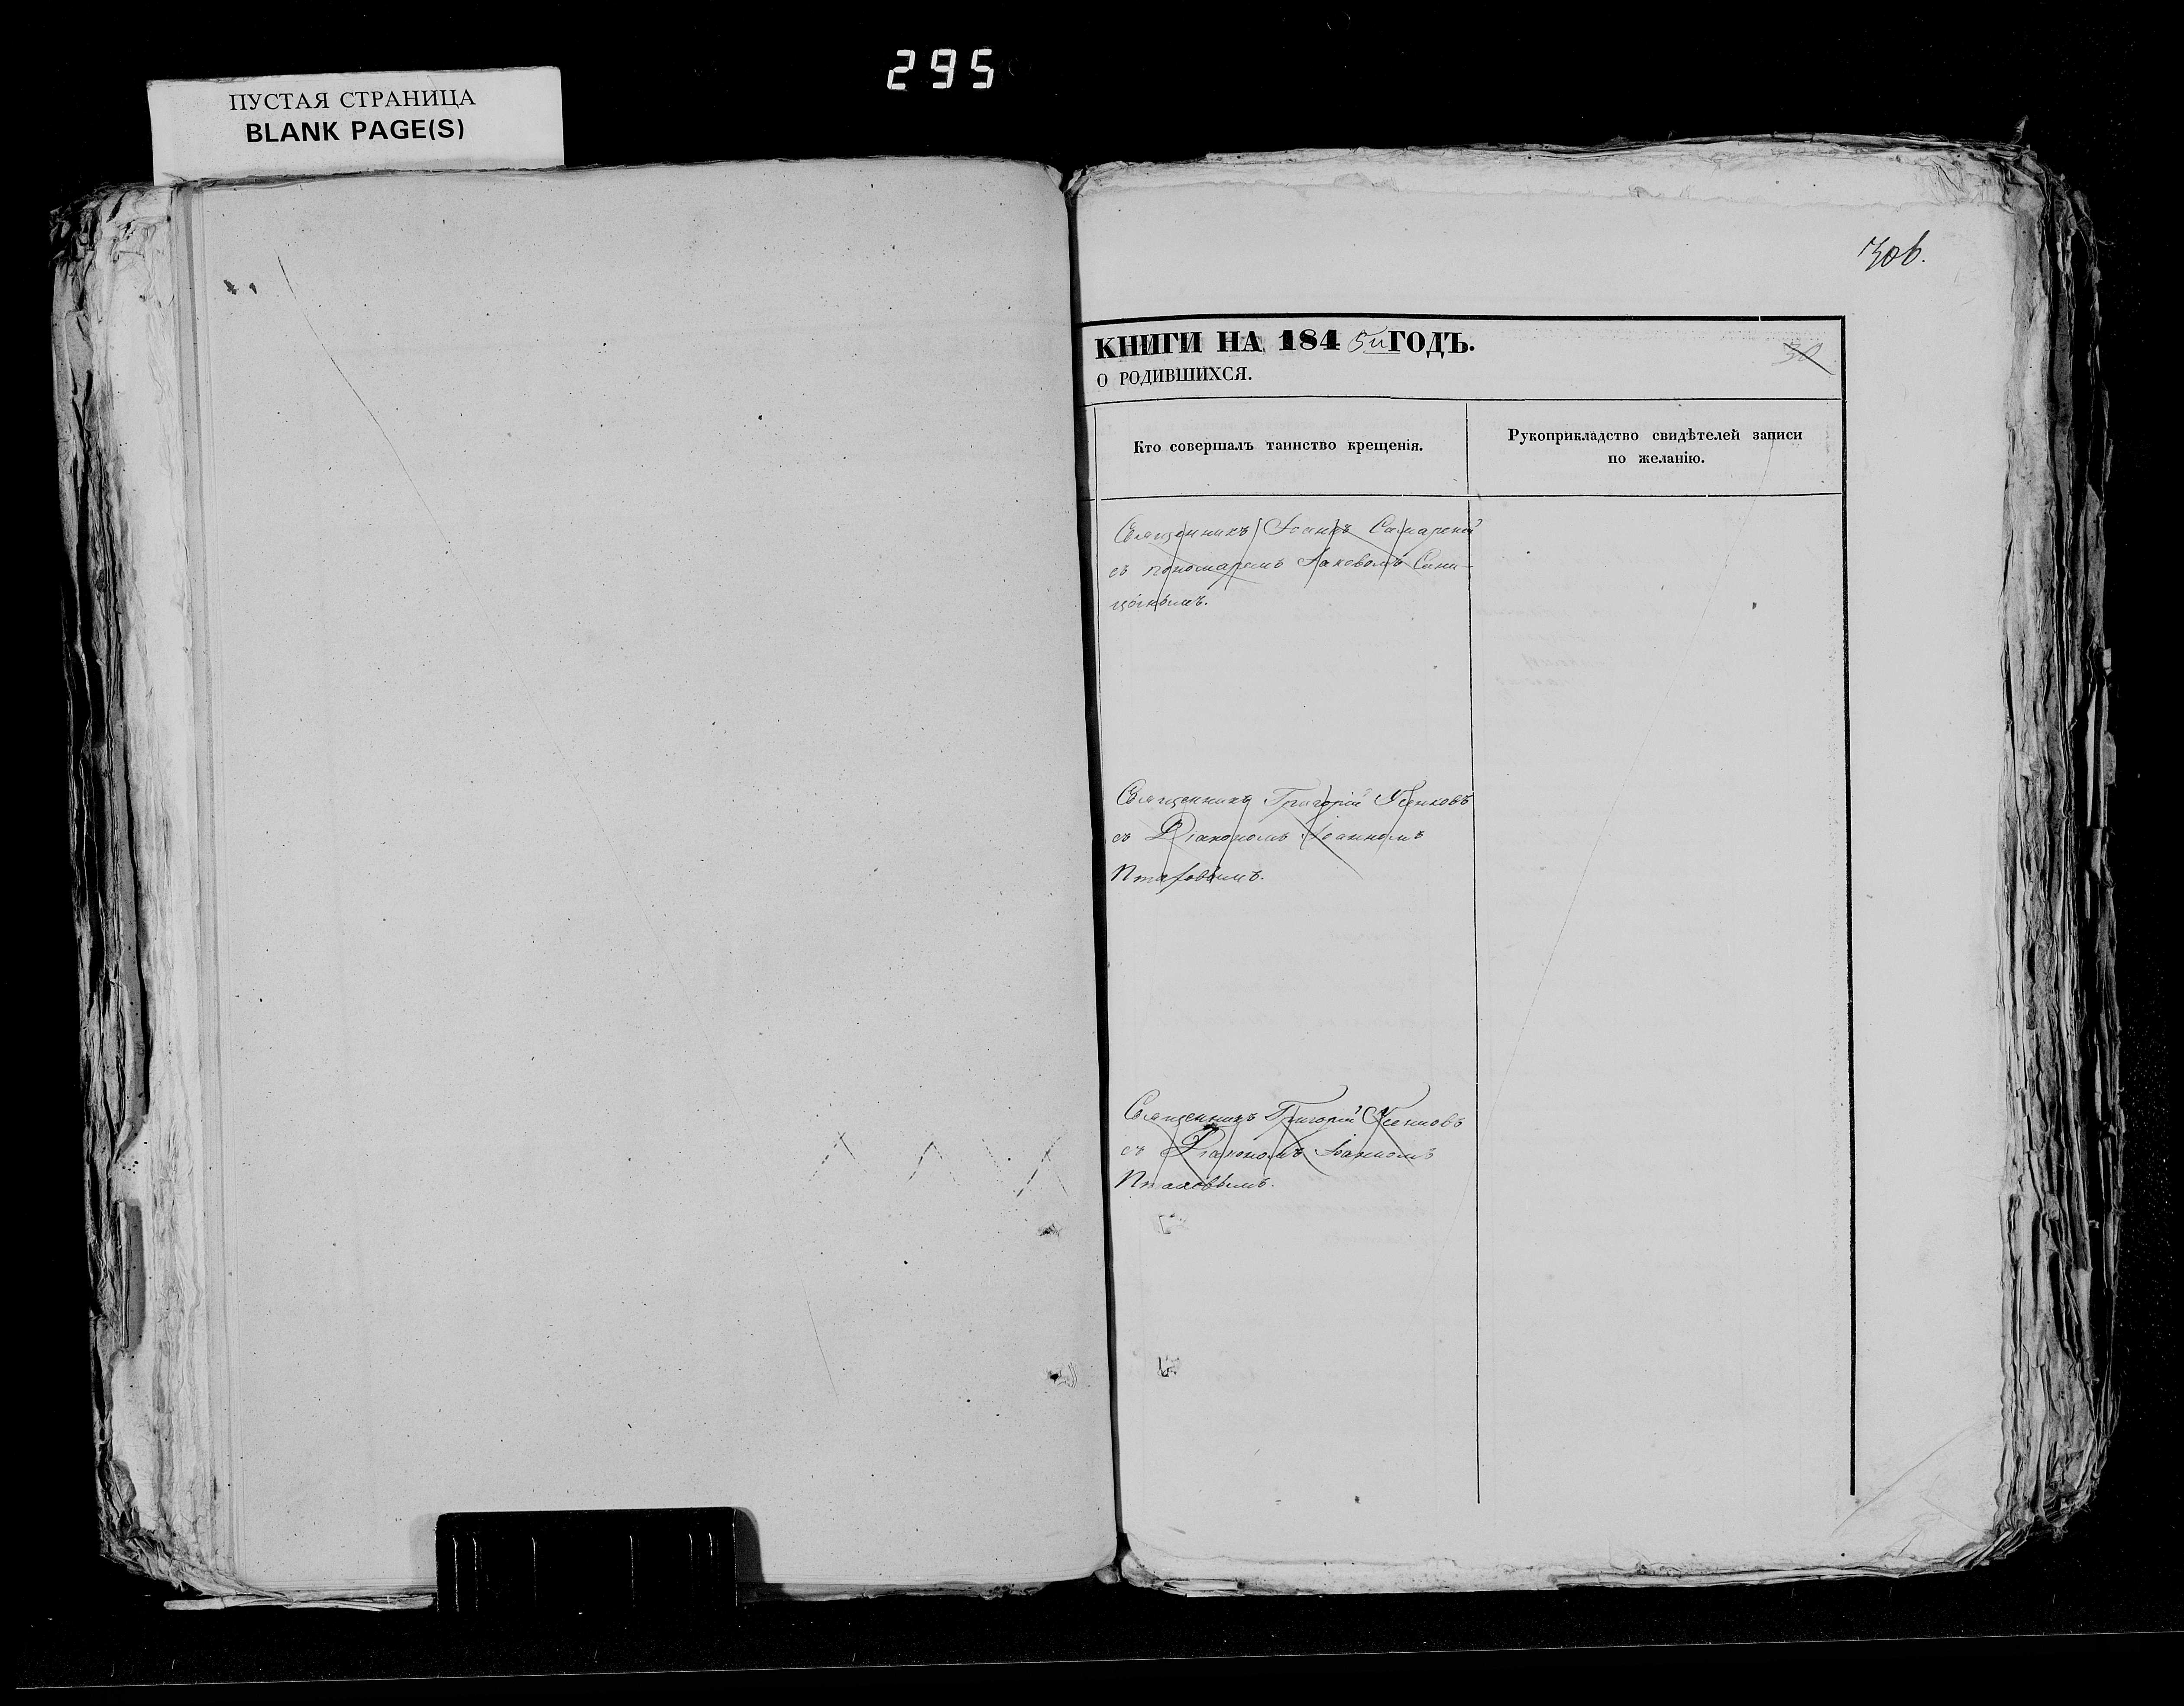 295
ПУСТАЯ СТРАНИЦА
BLANK PAGE(S)
306.
КНИГИ НА 184 5й ГОДЪ.
30
О РОДИВШИХСЯ.
Кто совершалъ таинство крещенія.
Рукоприкладство свидѣтелей записи
по желанію.
Священникъ Іоаннъ Самарскій
съ пономаремъ Іаковомъ
Священникъ Григорій Усенковъ
съ Діакономъ Іоанномъ
Священникъ Григорій Усенковъ
съ Діакономъ Іоанномъ